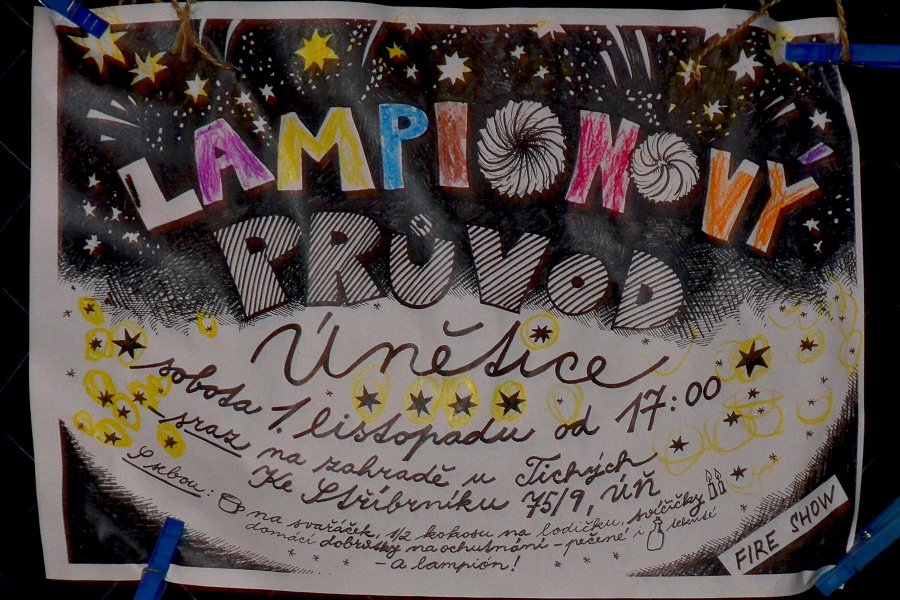 LAMPIONOVÝ
PRŮVOD
Únětice
sobota 1. listopadu od 17:00
- sraz na zahradě u Tichých
Ke Stříbrníku 75/9, ÚŇ
S sebou: na svařáček, 1/2 kokosu na lodičku, svíčičky
domácí dobrůtky na ochutnání - pečené i tekuté
- a lampion!
FIRE SHOW